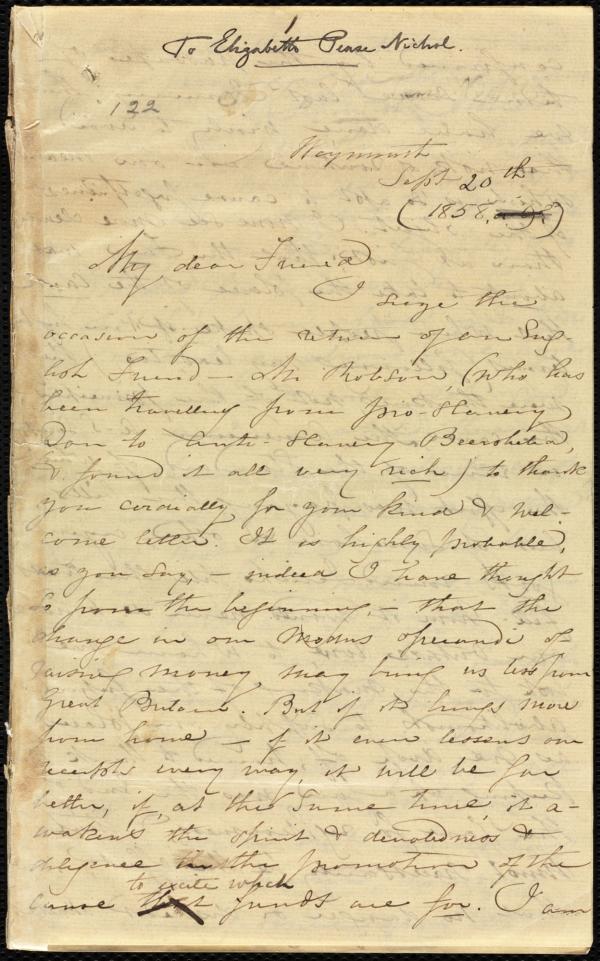 1
To Elizabeth Pease Nichol.
122
Weymouth
Sept 20th
(1858.
My dear Friend
I seize the
occasion of the return of our Eng
lish Friend - Mr Robson, (who has
been travelling from pro-slavery
Dan to Anti-Slavery Beersheba,
& found it all very rich) to thank
you cordially for your kind & wel-
come letter. It is highly probable,
as you say, - indeed I have thought
so from the beginning, - that the
change in our modus operandi of
raising money, may bring us less from
Great Britain. But if it brings more
from home - if it even lessens our
receipts every way, it will be far
better, if, at the same time, it a-
wakens the spirit & devotedness &
diligence in the promotion of the
to excite which
cause that funds are for. I am